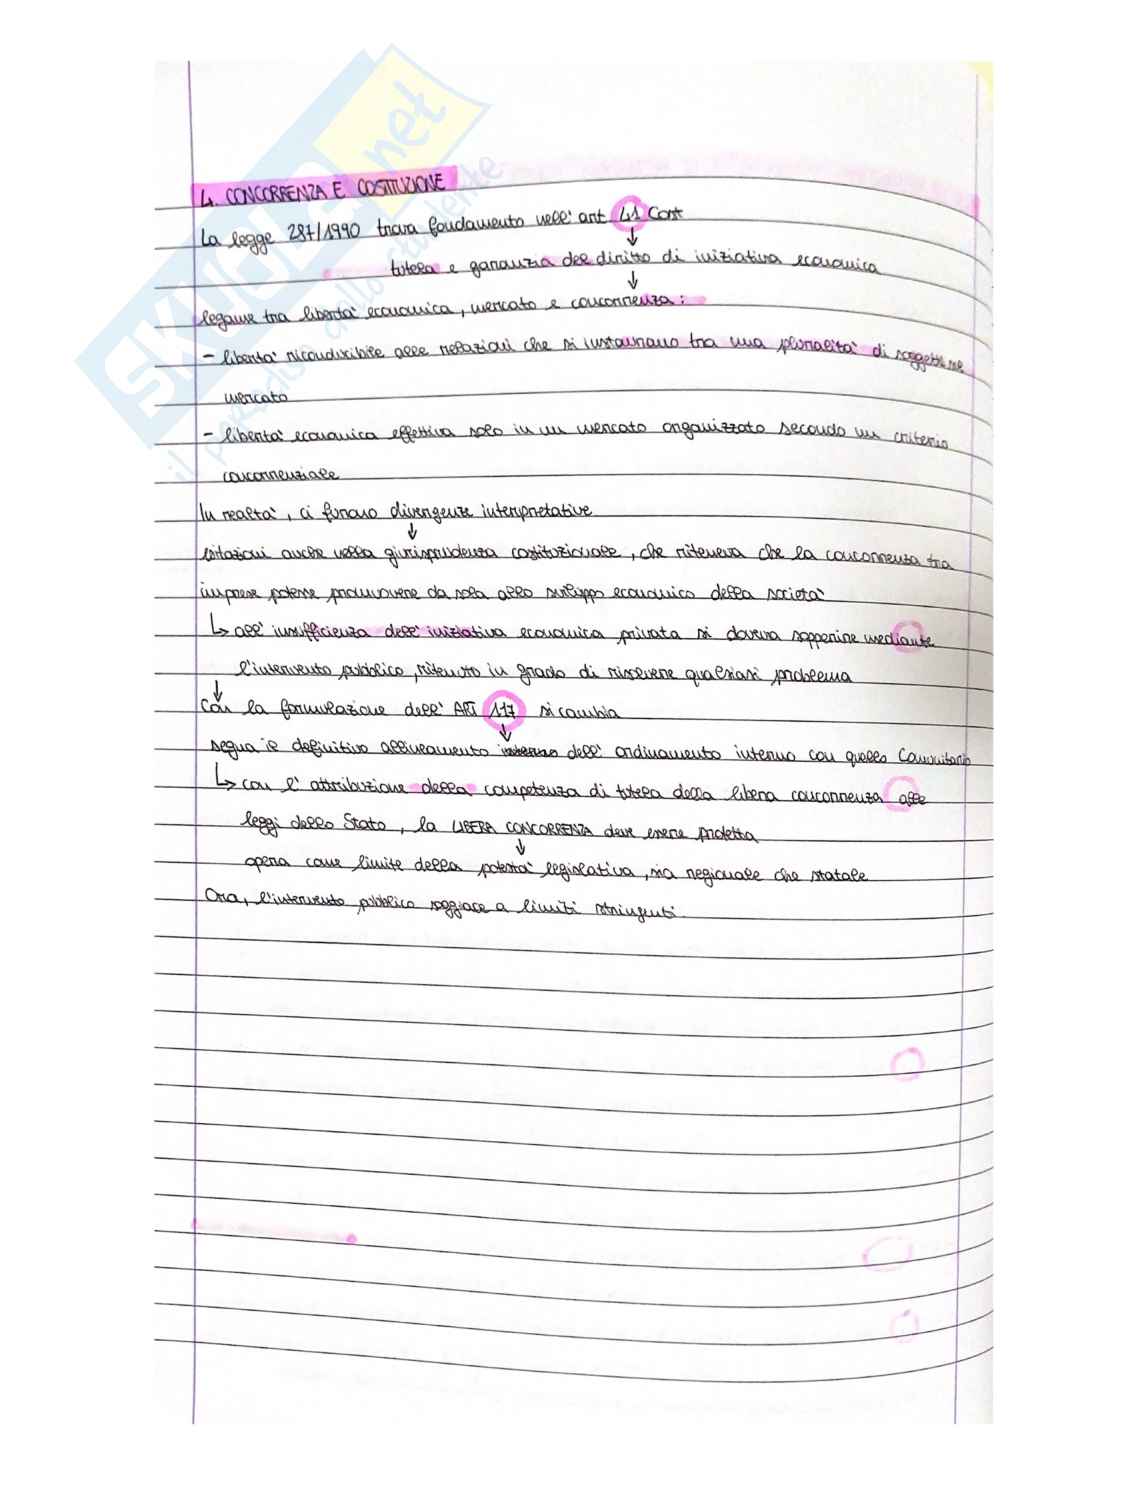 SKUOLA.net
il paradiso dello studente
4. CONCORRENZA E COSTITUZIONE
La legge 287/1990 trova fondamento nell'art 41 Cost
↓
tutela e garanzia del diritto di iniziativa economica
↓
legame tra libertà economica, mercato e concorrenza:
- libertà riconducibile alle relazioni che si instaurano tra una pluralità di soggetti nel
mercato
- libertà economica effettiva solo in un mercato organizzato secondo un criterio
concorrenziale
In realtà, ci furono divergenze interpretative
↓
esitazioni anche nella giurisprudenza costituzionale, che riteneva che la concorrenza tra
imprese potesse promuovere da sola allo sviluppo economico della società
↳ all'insufficienza dell'iniziativa economica privata si doveva sopperire mediante
l'intervento pubblico, ritenuto in grado di risolvere qualsiasi problema
↓
Con la formulazione dell'ART 117 si cambia
↓
segna il definitivo allineamento interno dell'ordinamento interno con quello Comunitario
↳ con l'attribuzione della competenza di tutela della libera concorrenza alle
leggi dello Stato, la LIBERA CONCORRENZA deve essere protetta
↓
opera come limite della potestà legislativa, sia regionale che statale
Ora, l'intervento pubblico soggiace a limiti stringenti.